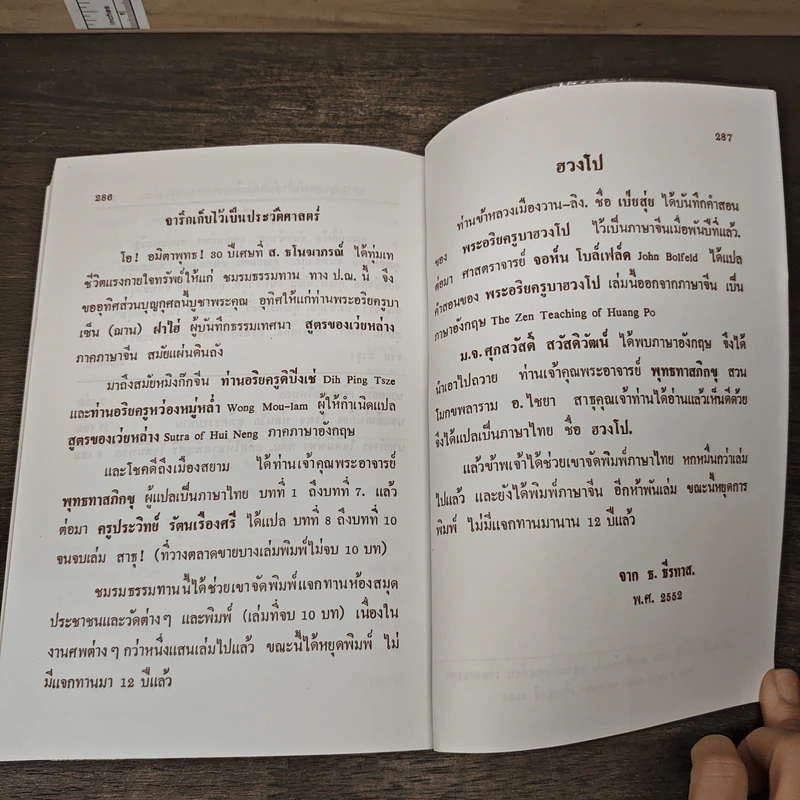 286
จารึกเก็บไว้เป็นประวัติศาสตร์
โอ! อมิตาพุทธ! 30 ปีเศษที่ ส. ธโนฆาภรณ์ ได้ทุ่มเท
ชีวิตแรงกายใจทรัพย์ให้แก่ ชมรมธรรมทาน ทาง ป.ณ. นี้ จึง
ขออุทิศส่วนบุญกุศลนี้บูชาพระคุณ อุทิศให้แก่ท่านพระอริยครูบา
เซ็น (ฌาน) ฝาไฮ่ ผู้บันทึกธรรมเทศนา สูตรของเว่ยหล่าง
ภาคภาษาจีน สมัยแผ่นดินถัง
มาถึงสมัยหมิงก๊กจีน ท่านอริยครูดิปิงเซ่ Dih Ping Tsze
และท่านอริยครูหว่องหมู่หล่ำ Wong Mou-lam ผู้ให้กำเนิดแปล
สูตรของเว่ยหล่าง Sutra of Hui Neng ภาคภาษาอังกฤษ
และโชคดีถึงเมืองสยาม ได้ท่านเจ้าคุณพระอาจารย์
พุทธทาสภิกขุ ผู้แปลเป็นภาษาไทย บทที่ 1 ถึงบทที่ 7. แล้ว
ต่อมา ครูประวิทย์ รัตนเรืองศรี ได้แปล บทที่ 8 ถึงบทที่ 10
จนจบเล่ม สาธุ! (ที่วางตลาดขายบางเล่มพิมพ์ไม่จบ 10 บท)
ชมรมธรรมทานนี้ได้ช่วยเขาจัดพิมพ์แจกทานห้องสมุด
ประชาชนและวัดต่างๆ และพิมพ์ (เล่มที่จบ 10 บท) เนื่องใน
งานศพต่างๆ กว่าหนึ่งแสนเล่มไปแล้ว ขณะนี้ได้หยุดพิมพ์ ไม่
มีแจกทานมา 12 ปีแล้ว
287
ฮวงโป
ท่านข้าหลวงเมืองวาน-ลิง. ชื่อ เป่ยสุ่ย ได้บันทึกคำสอน
ของ พระอริยครูบาฮวงโป ไว้เป็นภาษาจีนเมื่อพันปีที่แล้ว.
ต่อมา ศาสตราจารย์ จอห์น โบล์เฟล็ด John Bolfeld ได้แปล
คำสอนของ พระอริยครูบาฮวงโป เล่มนี้ออกจากภาษาจีน เป็น
ภาษาอังกฤษ The Zen Teaching of Huang Po
ม.จ.ศุภสวัสดิ์ สวัสดิวัฒน์ ได้พบภาษาอังกฤษ จึงได้
นำเอาไปถวาย ท่านเจ้าคุณพระอาจารย์ พุทธทาสภิกขุ สวน
โมกขพลาราม อ.ไชยา สาธุคุณเจ้าท่านได้อ่านแล้วเห็นดีด้วย
จึงได้แปลเป็นภาษาไทย ชื่อ ฮวงโป.
แล้วข้าพเจ้าได้ช่วยเขาจัดพิมพ์ภาษาไทย หกหมื่นกว่าเล่ม
ไปแล้ว และยังได้พิมพ์ภาษาจีน อีกห้าพันเล่ม ขณะนี้หยุดการ
พิมพ์ ไม่มีแจกทานมานาน 12 ปีแล้ว
จาก ธ. ธีรทาส.
พ.ศ. 2552